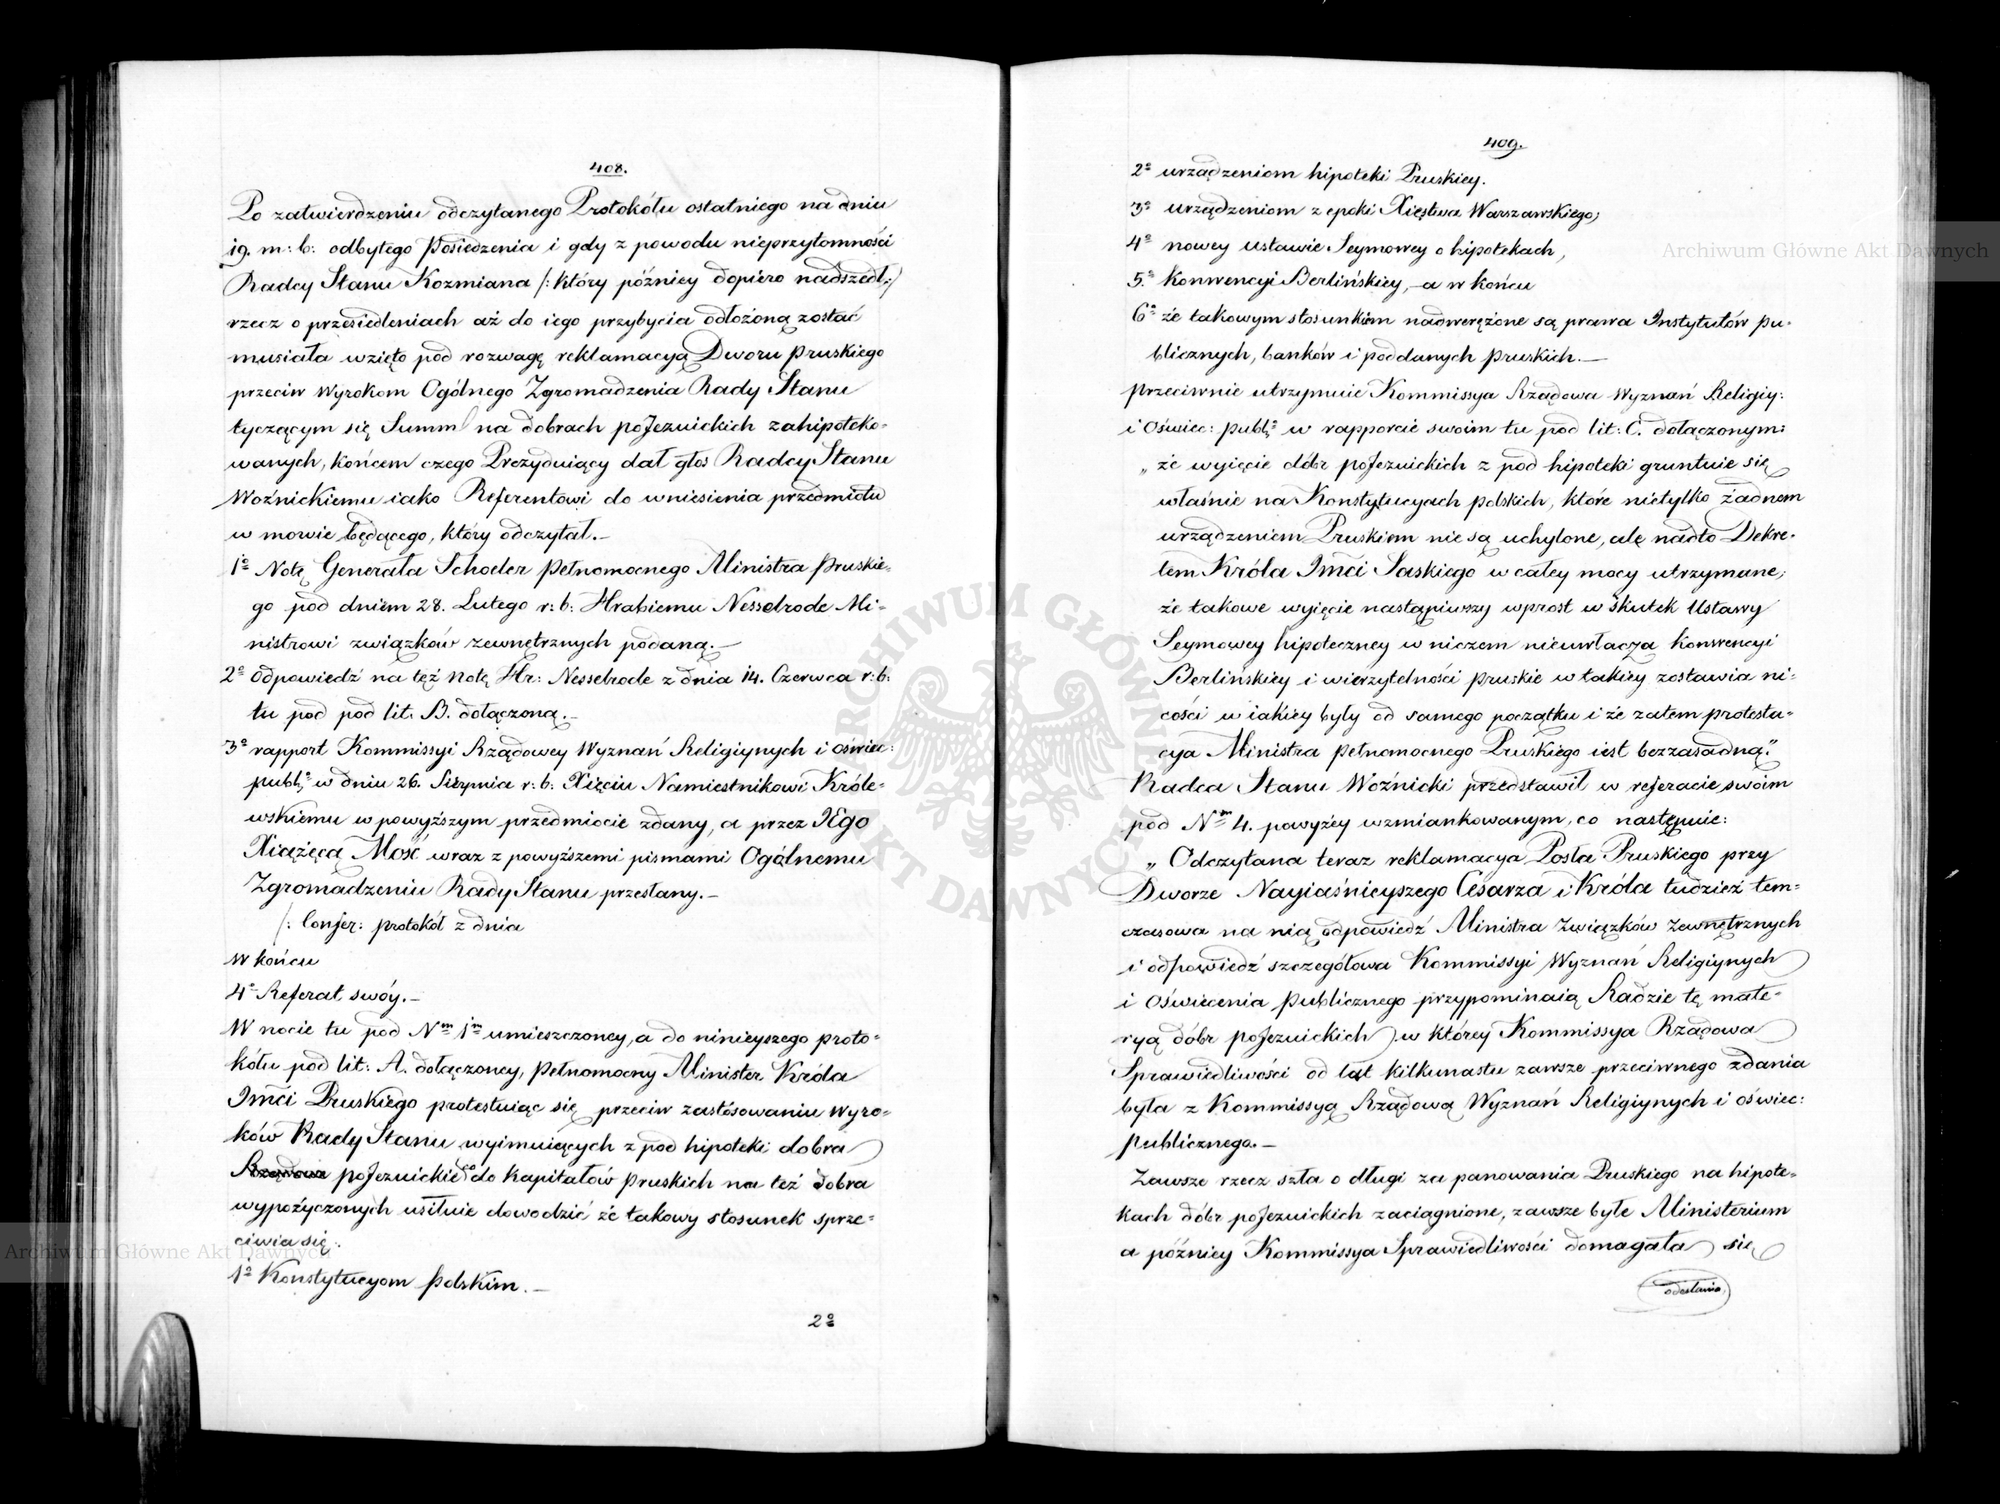 408.
Po zatwierdzeniu odczytanego Protokółu ostatniego na dniu
19. m: b: odbytego Posiedzenia i gdy z powodu nieprzytomności
Radcy Stanu Kozmiana /: który późniey dopiero nadszedł :/
rzecz o przesiedleniach aż do iego przybycia odłożoną zostać
musiała wzięto pod rozwagę reklamacyą Dworu Pruskiego
przeciw Wyrokom Ogólnego Zgromadzenia Rady Stanu
tyczącym się Summ na dobrach poJezuickich zahipoteko-
wanych, końcem czego Prezyduiący dał głos Radcy Stanu
Woźnickiemu iako Referentowi do wniesienia przedmiotu
w mowie będącego, który odczytał. –
1º Notę Generała Schoeler Pełnomocnego Ministra Pruskie-
go pod dniem 28. Lutego r: b: Hrabiemu Nesselrode Mi-
nistrowi związków zewnętrznych podaną. –
2º Odpowiedź na też Notę Hr: Nesselrode z dnia 14. Czerwca r: b:
tu pod pod lit. B. dołączoną. –
3º rapport Kommissyi Rządowey Wyznań Religiynych i oświec:
publ: w dniu 26. Sierpnia r: b: Xięciu Namiestnikowi Króle-
wskiemu w powyższym przedmiocie zdany, a przez JEgo
Xiążęcą Mość wraz z powyższemi pismami Ogólnemu
Zgromadzeniu Rady Stanu przesłany. –
/: Confer: protokół z dnia
W końcu
4º Referat swóy. –
W nocie tu pod Nm 1m umieszczoney, a do ninieyszego proto-
kółu pod lit: A. dołączoney, Pełnomocny Minister Króla
Imći Pruskiego protestuiąc się przeciw zastósowaniu wyro-
ków Rady Stanu wyimuiących z pod hipoteki dobra
Rządowe poJezuickie co do Kapitałów Pruskich na też dobra
wypożyczonych usiłuie dowodzić że takowy stosunek sprze-
ciwia się:
1º Konstytucyom Polskim. –
2º
409.
2º urządzeniom hipoteki Pruskiey.
3º urządzeniom z epoki Xięstwa Warszawskiego,
4º nowey ustawie Seymowey o hipotekach,
5º Konwencyi Berlińskiey, – a w końcu
6º że takowym stosunkiem nadwerężone są prawa Instytutów pu-
blicznych, banków i poddanych pruskich. –
Przeciwnie utrzymuie Kommissya Rządowa Wyznań Religiy:
i Oświec: publ: w rapporcie swoim tu pod lit: C. dołączonym:
„ że wyięcie dóbr poJezuickich z pod hipoteki gruntuie się
właśnie na Konstytucyach polskich, które nietylko żadnem
urządzeniem Pruskiem nie są uchylone, ale nadto Dekre-
tem Króla Imći Saskiego w całey mocy utrzymane;
że takowe wyięcie nastąpiwszy wprost w skutek Ustawy
Seymowey hipoteczney w niczem nieuwłacza Konwencyi
Berlińskiey i wierzytelności pruskie w takiey zostawia ni-
cości w iakiey były od samego początku i że zatem protesta-
cya Ministra Pełnomocnego Pruskiego iest bezzasadną.”
Radca Stanu Woźnicki przedstawił w referacie swoim
pod Nm 4. powyżey wzmiankowanym, co następuie:
„ Odczytana teraz reklamacya Posła Pruskiego przy
Dworze Nayiaśnieyszego Cesarza i Króla tudzież tem-
czasowa na nią odpowiedź Ministra Związków Zewnętrznych
i odpowiedź szczegółowa Kommissyi Wyznań Religiynych
i Oświecenia Publicznego przypominaią Radzie tę mate-
ryą dóbr poJezuickich w którey Kommissya Rządowa
Sprawiedliwości od lat kilkunastu zawsze przeciwnego zdania
była z Kommissyą Rządową Wyznań Religiynych i oświec:
publicznego. –
Zawsze rzecz szła o długi za panowania Pruskiego na hipote-
kach dóbr poJezuickich zaciągnione, zawsze byłe Ministerium
a późniey Kommissya Sprawiedliwości domagała się
odesłania,
Archiwum Główne Akt Dawnych
Archiwum Główne Akt Dawnych
ARCHIWUM GŁÓWNE AKT DAWNYCH